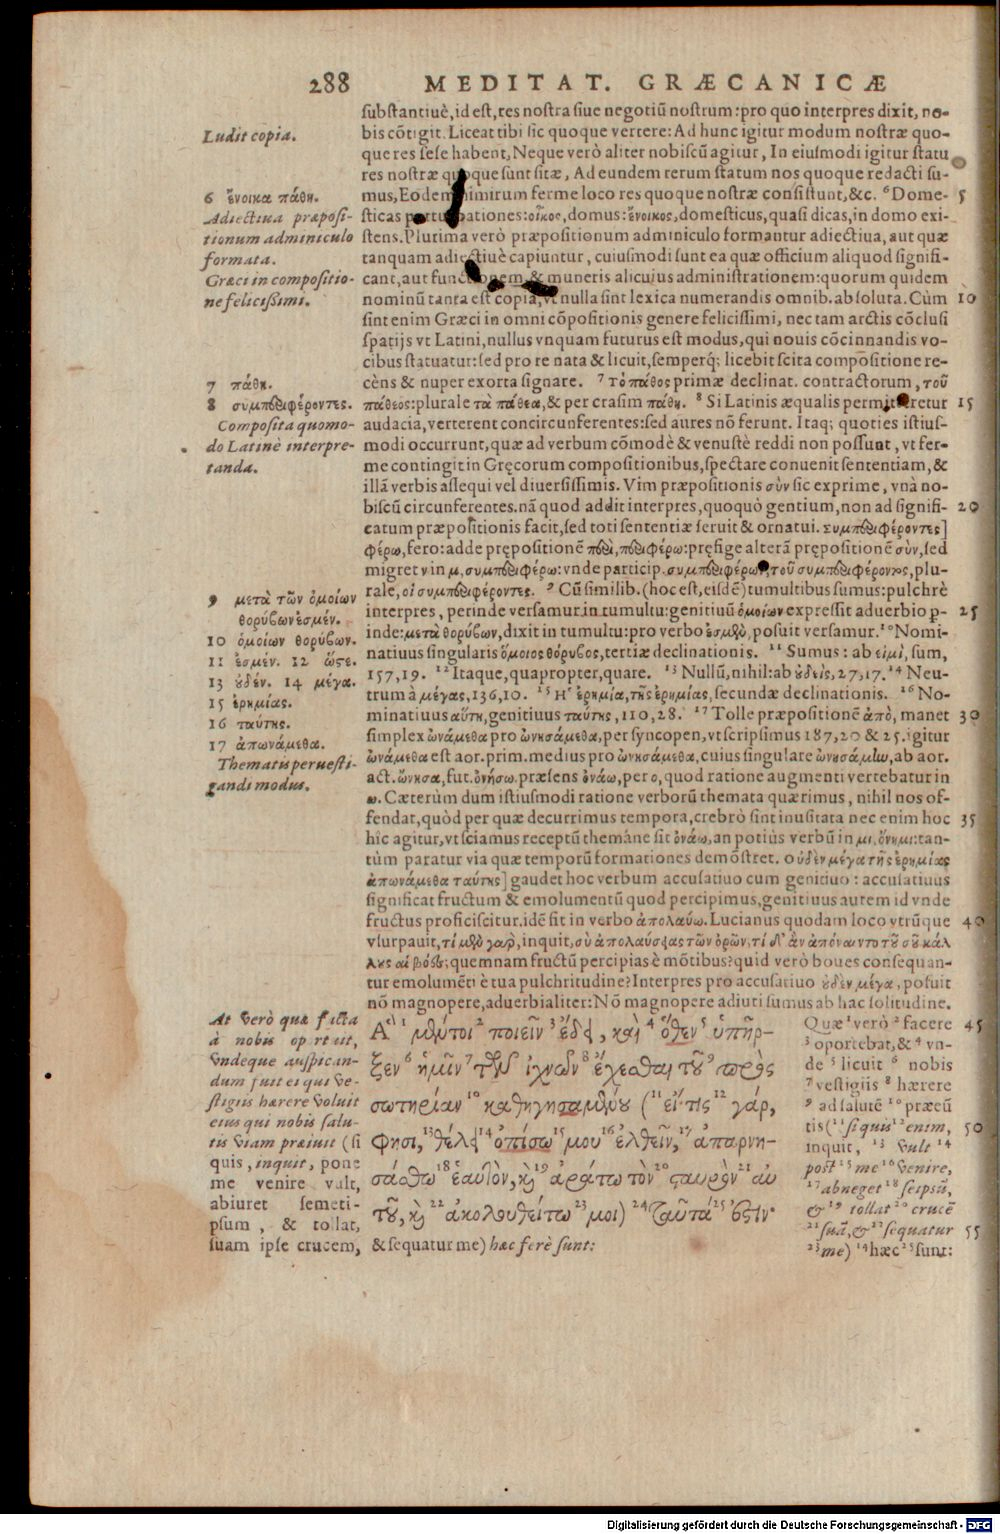 288 MEDITAT. GRÆCANICÆ
substantiuè, id est, res nostra siue negotiū nostrum: pro quo interpres dixit, no-
bis cōtigit. Liceat tibi sic quoque vertere: Ad hunc igitur modum nostræ quo-
que res sese habent, Neque verò aliter nobiscū agitur, In eiusmodi igitur statu
res nostræ quoque sunt sitæ, Ad eundem rerum statum nos quoque redacti su-
mus, Eodem nimirum ferme loco res quoque nostræ consistunt, &c. ⁶Dome- 5
sticas perturbationes: οἶκος, domus: ἔνοικος, domesticus, quasi dicas, in domo exi-
stens. Plurima verò præpositionum adminiculo formantur adiectiua, aut quæ
tanquam adiectiuè capiuntur, cuiusmodi sunt ea quæ officium aliquod signifi-
cant, aut functionem & muneris alicuius administrationem: quorum quidem
nominū tanta est copia, vt nulla sint lexica numerandis omnib. absoluta. Cùm 10
sint enim Græci in omni cōpositionis genere felicissimi, nec tam arctis cōclusi
spatijs vt Latini, nullus vnquam futurus est modus, qui nouis cōcinnandis vo-
cibus statuatur: sed pro re nata & licuit, semperq; licebit scita compōsitione re-
cèns & nuper exorta signare. ⁷ Τὸ πάθος primæ declinat. contractorum, τοῦ
πάθεος: plurale τὰ πάθεα, & per crasim πάθη. ⁸ Si Latinis æqualis permitteretur 15
audacia, verterent concircunferentes: sed aures nō ferunt. Itaq; quoties istius-
modi occurrunt, quæ ad verbum cōmodè & venustè reddi non possunt, vt fer-
me contingit in Gręcorum compositionibus, spectare conuenit sententiam, &
illā verbis assequi vel diuersissimis. Vim præpositionis σὺν sic exprime, vnà no-
biscū circunferentes. nā quod addit interpres, quoquò gentium, non ad signifi- 20
catum præpositionis facit, sed toti sententiæ seruit & ornatui. Συμπεριφέροντες]
φέρω, fero: adde prępositionē περὶ, περιφέρω: pręfige alterā prępositionē σὺν, sed
migret ν in μ, συμπεριφέρω: vnde particip. συμπεριφέρων, τοῦ συμπεριφέροντος, plu-
rale, οἱ συμπεριφέροντες. ⁹ Cū similib. (hoc est, eisdē) tumultibus sumus: pulchrè
interpres, perinde versamur in tumultu: genitiuū ὁμοίων expressit aduerbio p- 25
inde: μετὰ θορύβων, dixit in tumultu: pro verbo ἐσμὲν, posuit versamur. ¹⁰Nomi-
natiuus singularis ὅμοιος θόρυβος, tertiæ declinationis. ¹¹ Sumus: ab εἰμὶ, sum,
157, 19. ¹² Itaque, quapropter, quare. ¹³ Nullū, nihil: ab οὐδεὶς, 27, 17. ¹⁴ Neu-
trum à μέγας, 136, 10. ¹⁵ Ἡ ἐρημία, τῆς ἐρημίας, secundæ declinationis. ¹⁶ No-
minatiuus αὕτη, genitiuus ταύτης, 110, 28. ¹⁷ Tolle præpositionē ἀπὸ, manet 30
simplex ὠνάμεθα pro ὠνησάμεθα, per syncopen, vt scripsimus 187, 20 & 25. igitur
ὠνάμεθα est aor. prim. medius pro ὠνησάμεθα, cuius singulare ὠνησάμην, ab aor.
act. ὤνησα, fut. ὀνήσω. præsens ὀνάω, per ο, quod ratione augmenti vertebatur in
ω. Cæterùm dum istiusmodi ratione verborū themata quærimus, nihil nos of-
fendat, quòd per quæ decurrimus tempora, crebrò sint inusitata nec enim hoc 35
hîc agitur, vt sciamus receptū themáne sit ὀνάω, an potiùs verbū in μι, ὄνημι: tan-
tùm paratur via quæ temporū formationes demōstret. Οὐδὲν μέγα τῆς ἐρημίας
ἀπωνάμεθα ταύτης] gaudet hoc verbum accusatiuo cum genitiuo: accusatiuus
significat fructum & emolumentū quod percipimus, genitiuus autem id vnde
fructus proficiscitur. idē fit in verbo ἀπολαύω. Lucianus quodam loco vtrūque 40
vsurpauit, τί μὲν γὰρ, inquit, σὺ ἀπολαύσειας τῶν ὀρῶν, τί δ' ἂν ἀπόναιντο τοῦ σοῦ κάλ
λους αἱ βόες; quemnam fructū percipias è mōtibus? quid verò boues consequan-
tur emolumēti è tua pulchritudine? Interpres pro accusatiuo οὐδὲν μέγα, posuit
nō magnopere, aduerbialiter: Nō magnopere adiuti sumus ab hac solitudine.
Ludit copia.
6 ἔνοικα πάθη.
Adiectiua præposi-
tionum adminiculo
formata.
Græci in compositio-
ne felicissimi.
7 πάθη.
8 συμπεριφέροντες.
Composita quomo-
do Latinè interpre-
tanda.
9 μετὰ τῶν ὁμοίων
θορύβων ἐσμέν.
10 ὁμοίων θορύβων.
11 ἐσμέν. 12 ὥστε.
13 οὐδέν. 14 μέγα.
15 ἐρημίας.
16 ταύτης.
17 ἀπωνάμεθα.
Thematis peruesti-
gandi modus.
At verò quæ facta
à nobis oportuit,
vndeque auspican-
dum fuit ei qui ve-
stigiis hærere voluit
eius qui nobis salu-
tis viam præiuit (si
quis, inquit, pone
me venire vult,
abiuret semeti-
psum, & tollat,
suam ipse crucem, & sequatur me) hæc ferè sunt:
Ἃ ¹ μέντοι ² ποιεῖν ³ ἔδει, καὶ ⁴ ὅθεν ⁵ ὑπῆρ-
ξεν ⁶ ἡμῖν ⁷ τῶν ἰχνῶν ⁸ ἔχεσθαι τοῦ ⁹ πρὸς
σωτηρίαν ¹⁰ καθηγησαμένου (¹¹ εἴ τις ¹² γάρ,
φησι, ¹³ θέλει ¹⁴ ὀπίσω ¹⁵ μου ¹⁶ ἐλθεῖν, ¹⁷ ἀπαρνη-
σάσθω ¹⁸ ἑαυτὸν, καὶ ¹⁹ ἀράτω τὸν ²⁰ σταυρὸν ²¹ αὑ
τοῦ, καὶ ²² ἀκολουθείτω ²³ μοι) ²⁴ ταῦτά ²⁵ ἐστιν·
Quæ ¹ verò ² facere 45
³ oportebat, & ⁴ vn-
de ⁵ licuit ⁶ nobis
⁷ vestigiis ⁸ hærere
⁹ ad salutē ¹⁰ præeū
tis (¹¹ si quis ¹² enim, 50
inquit, ¹³ vult ¹⁴
post ¹⁵ me ¹⁶ venire,
¹⁷ abneget ¹⁸ seipsū,
& ¹⁹ tollat ²⁰ crucē
²¹ suā, & ²² sequatur 55
²³ me) ²⁴ hæc ²⁵ sunt:
Digitalisierung gefördert durch die Deutsche Forschungsgemeinschaft - DFG